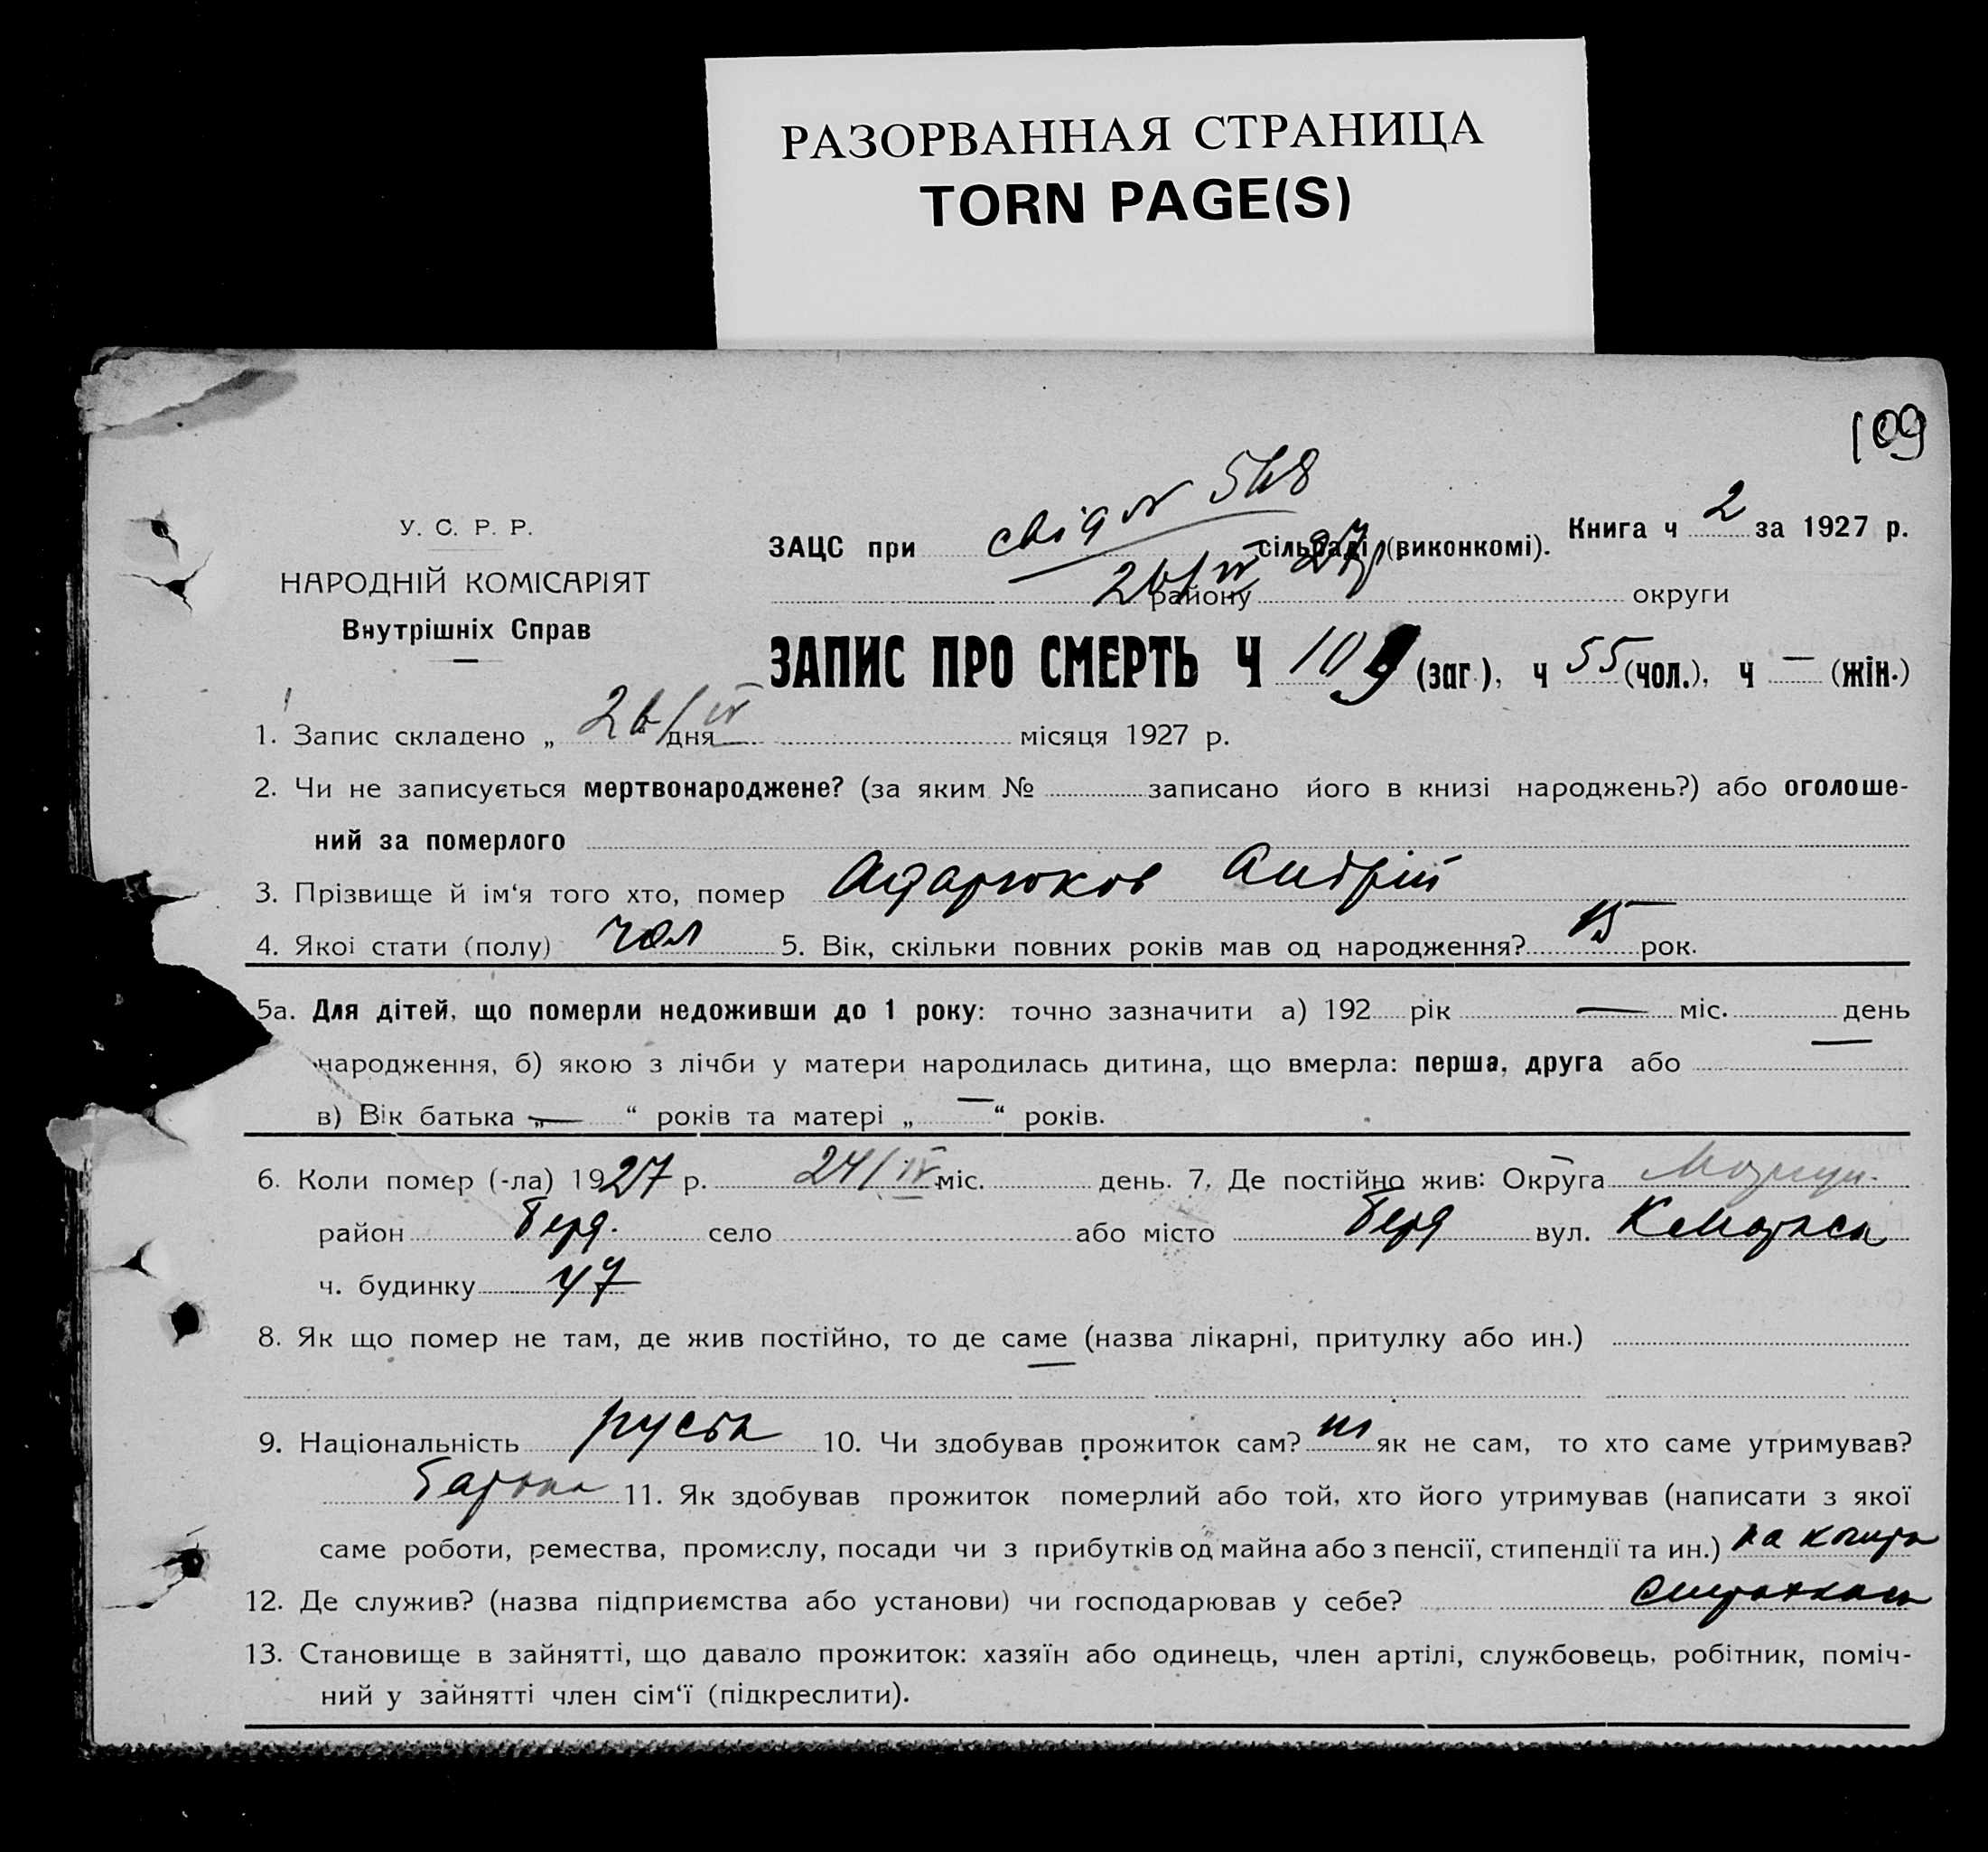 РАЗОРВАННАЯ СТРАНИЦА
TORN PAGE(S)
109
У. С. Р. Р.
НАРОДНІЙ КОМІСАРІЯТ
Внутрішніх Справ
ЗАЦС при сільраді (виконкомі). Книга ч 2 за 1927 р.
26/IV 27р
району округи
ЗАПИС ПРО СМЕРТЬ Ч 109 (заг.), ч 55 (чол.), ч — (жін.)
1. Запис складено „ 26/IV “ дня місяця 1927 р.
2. Чи не записується мертвонароджене? (за яким № записано його в книзі народжень?) або оголоше-
ний за померлого
3. Прізвище й ім‘я того хто, помер Адарюков Андрій
4. Якоі стати (полу) чол 5. Вік, скільки повних років мав од народження? 15 рок.
5а. Для дітей, що померли недоживши до 1 року: точно зазначити а) 192 рік — міс. день
народження, б) якою з лічби у матери народилась дитина, що вмерла: перша, друга або —
в) Вік батька „ — “ років та матері „ — “ років.
6. Коли помер (-ла) 1927 р. 24/IV міс. день. 7. Де постійно жив: Округа
район Берд. село або місто Берд вул.
ч. будинку 47
8. Як що помер не там, де жив постійно, то де саме (назва лікарні, притулку або ин.)
—
9. Національність 10. Чи здобував прожиток сам? ні як не сам, то хто саме утримував?
батько 11. Як здобував прожиток померлий або той, хто його утримував (написати з якої
саме роботи, ремества, промислу, посади чи з прибутків од майна або з пенсії, стипендії та ин.)
12. Де служив? (назва підприємства або установи) чи господарював у себе?
13. Становище в зайнятті, що давало прожиток: хазяїн або одинець, член артілі, службовець, робітник, поміч-
ний у зайнятті член сім‘ї (підкреслити).